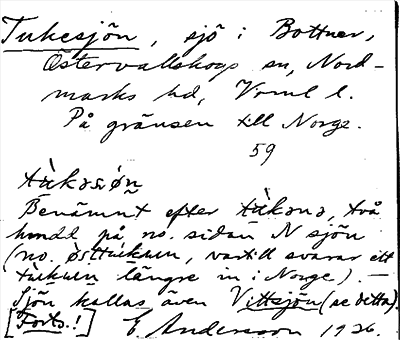 Tukesjön, sjö i Bottner,
Östervallskogs sn, Nord-
marks hd, Vrml l.
På gränsen till Norge.
59
Benämnt efter två
på no. sidan N sjön
(no. vartill svarar ett
längre in i Norge). —
Sjön kallas även Vittsjön (se detta).
[Forts.!] E. Andersson 1926.